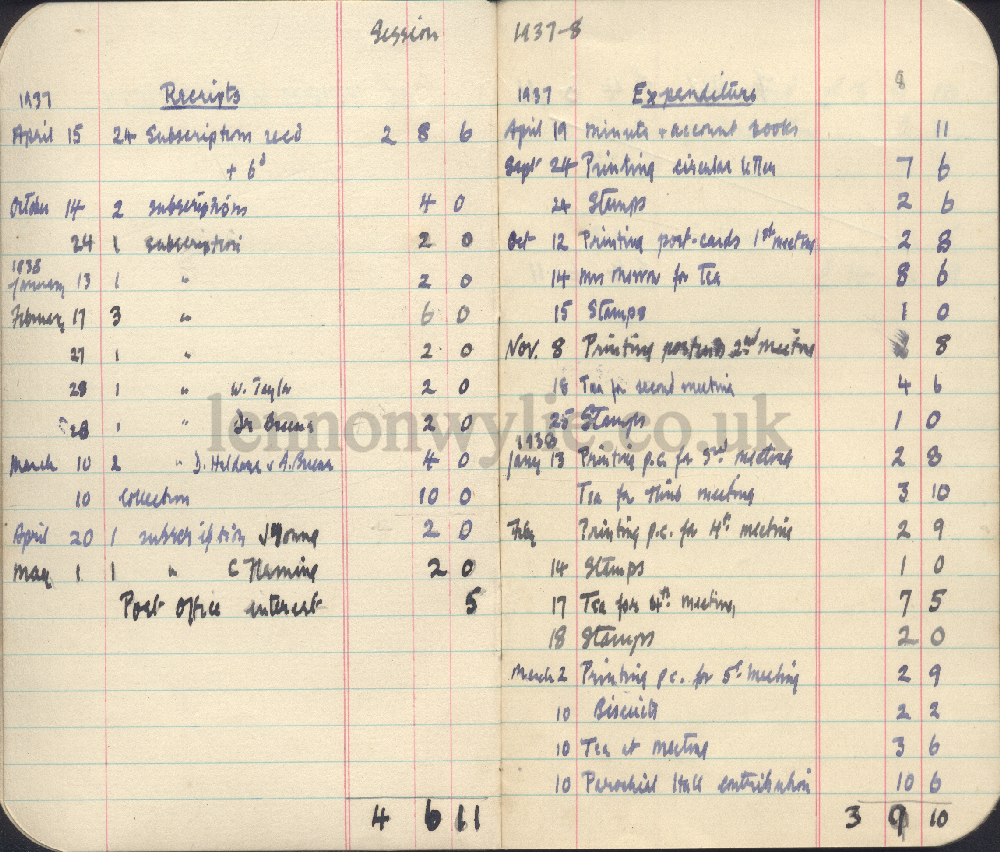 Session
1937 Receipts
April 15 24 Subscriptions recd 2 8 6
+ 6d
October 14 2 subscriptions 4 0
24 1 subscription 2 0
1938
January 13 1 " 2 0
February 17 3 " 6 0
27 1 " 2 0
28 1 " W. Taylor 2 0
28 1 " Dr Greene 2 0
March 10 2 " D. & A. 4 0
10 Collection 10 0
April 20 1 subscription J Young 2 0
May 1 1 " C Fleming 2 0
Post Office interest 5
4 6 11
1937-8
8
1937 Expenditure
April 19 Minute + account books 11
Sept 24 Printing circular letter 7 6
24 Stamps 2 6
Oct 12 Printing post-cards 1st meeting 2 8
14 Mrs Morrow for Tea 8 6
15 Stamps 1 0
Nov. 8 Printing postcards 2nd meeting 2 8
18 Tea for second meeting 4 6
25 Stamps 1 0
1938
Jany 13 Printing p.c. for 3rd meeting 2 8
Tea for third meeting 3 10
Feby Printing p.c. for 4th meeting 2 9
14 Stamps 1 0
17 Tea for 4th meeting 7 5
18 Stamps 2 0
March 2 Printing p.c. for 5th meeting 2 9
10 Biscuits 2 2
10 Tea at meeting 3 6
10 Parochial Hall contribution 10 6
3 9 10
lennonwylie.co.uk